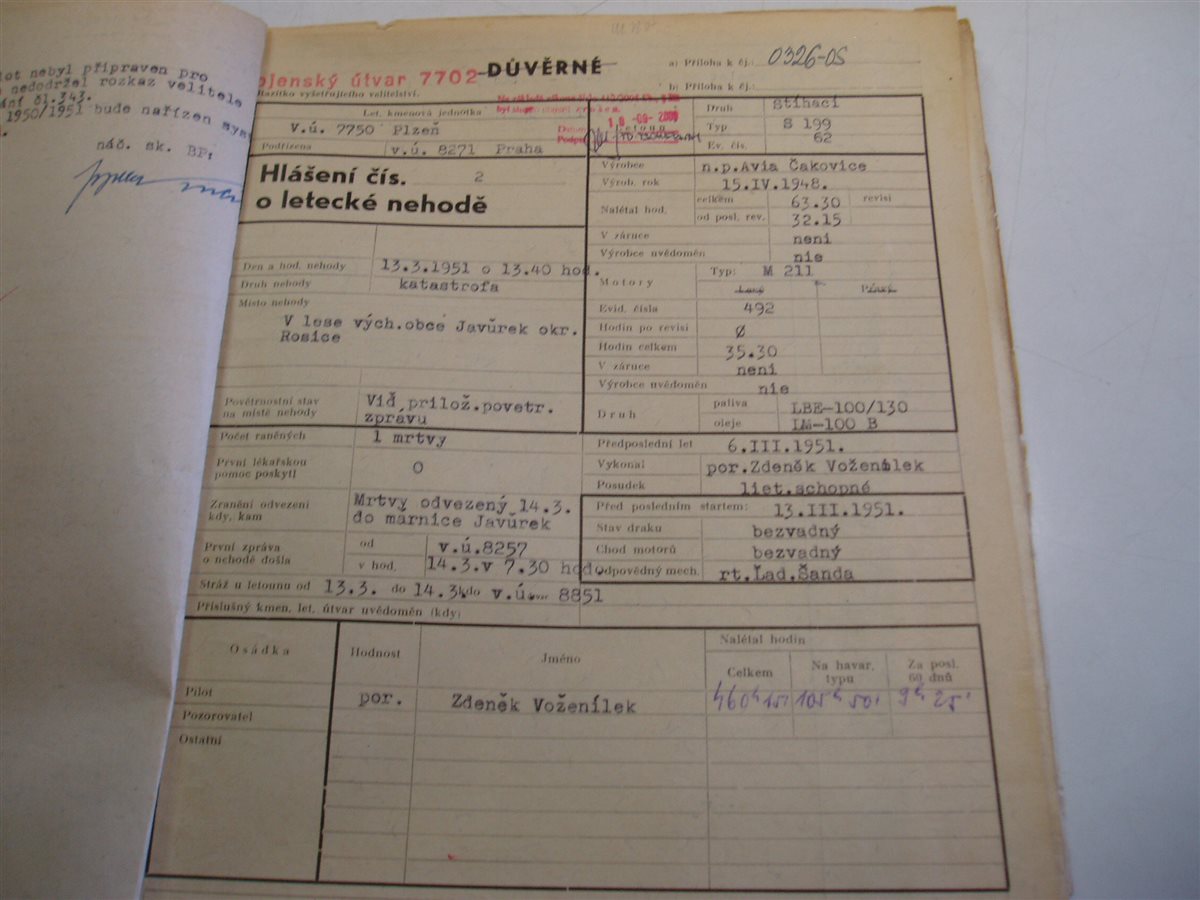 tot nebyl připraven pro
nedodržel rozkaz velitele
ání čl.343.
1950/1951 bude nařízen
náč. sk. BP:
ojenský útvar 7702
DŮVĚRNÉ
a) Příloha k čj.: 0326-05
b) Příloha k čj.:
Razítko vyšetřujícího velitelství.
Let. kmenová jednotka
V.ú. 7750 Plzeň
Podřízena v.ú. 8271 Praha
Letoun
Druh Stíhací
Typ S 199
Ev. čís. 62
Hlášení čís. 2
o letecké nehodě
Výrobce n.p.Avia Čakovice
Výrob. rok 15.IV.1948.
Nalétal hod. celkem 63.30 revisi
od posl. rev. 32.15
V záruce není
Výrobce uvědoměn nie
Den a hod. nehody 13.3.1951 o 13.40 hod.
Druh nehody katastrofa
Místo nehody
V lese vých.obce Javůrek okr.
Rosice
Motory Typ: M 211
Levý Pravý
Evid. čísla 492
Hodin po revisi Ø
Hodin celkem 35.30
V záruce není
Výrobce uvědoměn nie
Druh paliva LBE-100/130
oleje LM-100 B
Povětrnostní stav
na místě nehody
Viď prílož.povetr.
zprávu
Počet raněných 1 mrtvy
První lékařskou
pomoc poskytl 0
Zranění odvezeni
kdy, kam
Mrtvy odvezený 14.3.
do márnice Javůrek
První zpráva
o nehodě došla
od v.ú.8257
v hod. 14.3.v 7.30 hodo
Předposlední let 6.III.1951.
Vykonal por.Zdeněk Voženílek
Posudek liet.schopné
Před posledním startem: 13.III.1951.
Stav draku bezvadný
Chod motorů bezvadný
Odpovědný mech. rt.Lad.Šanda
Stráž u letounu od 13.3. do 14.3. kdo v.ú. 8851
Příslušný kmen. let. útvar uvědoměn (kdy)
Osádka Hodnost Jméno Nalétal hodin
Celkem Na havar. typu Za posl. 60 dnů
Pilot por. Zdeněk Voženílek 460h 15' 105h 50' 9h 25'
Pozorovatel
Ostatní